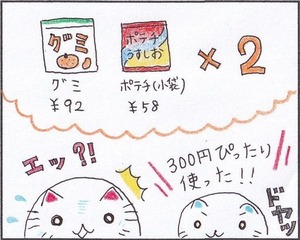 グミ
ポテチ
うすしお
×2
グミ
¥92
ポテチ(小袋)
¥58
エッ?!
300円ぴったり
使った!!
ドヤッ